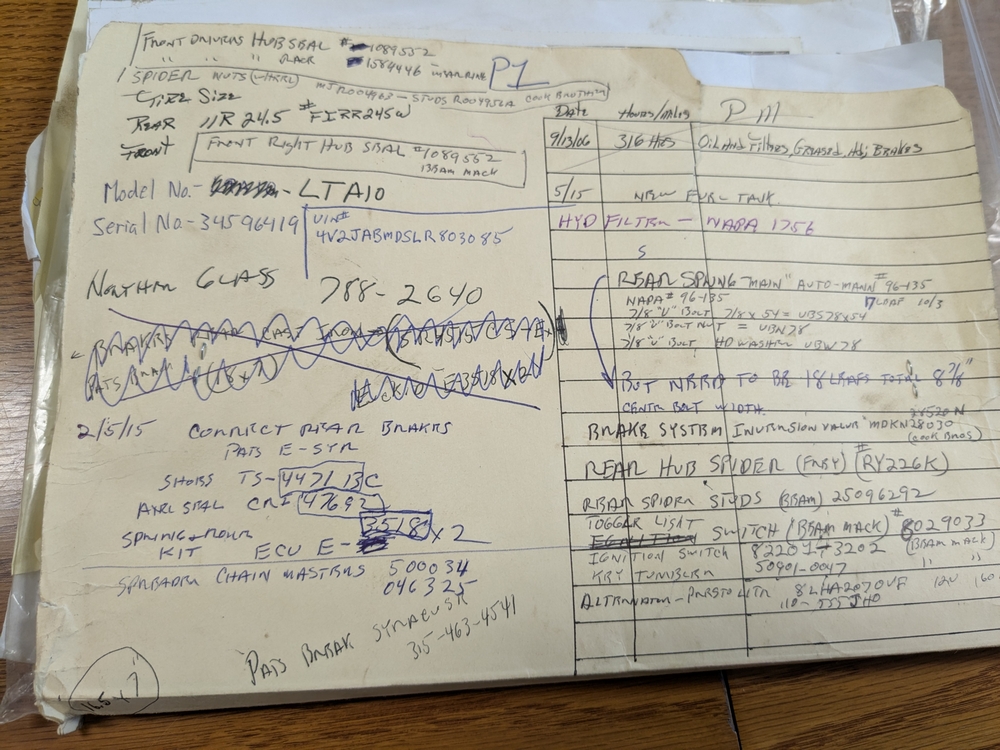 FRONT DRIVERS HUB SEAL # 1089552
" " " REAR 1584446
P1
SPIDER NUTS
TIRE SIZE
REAR 11R 24.5 # FIRR245W
FRONT
FRONT RIGHT HUB SEAL #1089552
BEAM MACK
Model No. - LTA10
Serial No - 34596419
VIN#
4V2JABMDSLR803085
NORTHRN GLASS 788-2640
2/5/15 CORRECT REAR BRAKES
PATS E-SYR
SHOES TS-4471 13C
AXEL SEAL CRI 47692
SPRING + ROLLER KIT ECU E- 3518C x 2
SPREADER CHAIN MASTERS 500034
046325
PATS BREAK SYRACUSE
315-463-4541
PM
DATE HOURS/MILES
9/13/06 316 HRS OIL AND FILTERS, GREASED, ADJ BRAKES
5/15 NEW FUEL TANK
HYD FILTER - NAPA 1756
S
REAR SPRING "MAIN" AUTO-MANN # 96-135
NAPA # 96-135 LEAF 10/3
7/8 "U" BOLT 7/8 x 54 = UBS78x54
7/8 "U" BOLT NUT = UBN78
7/8 "U" BOLT HD WASHER UBW78
BUT NEED TO BE 18 LEAFS TOTAL 8 7/8"
CENTR BOLT WIDTH.
BRAKE SYSTEM INVERSION VALUE MDKN28030
(COOK BROS)
REAR HUB SPIDER (ENBY) # (RY226K)
REAR SPIDER STUDS (BEAM) 25096292
TOGGLE LIGHT SWITCH (BEAM MACK) # 8029033
IGNITION SWITCH 82201-73202 (BEAM MACK)
KEY TUMBLER 50901-0047 " "
ALTERNATOR - PRESTOLITE 8LHA2070VF 12V 160
110-555JHO